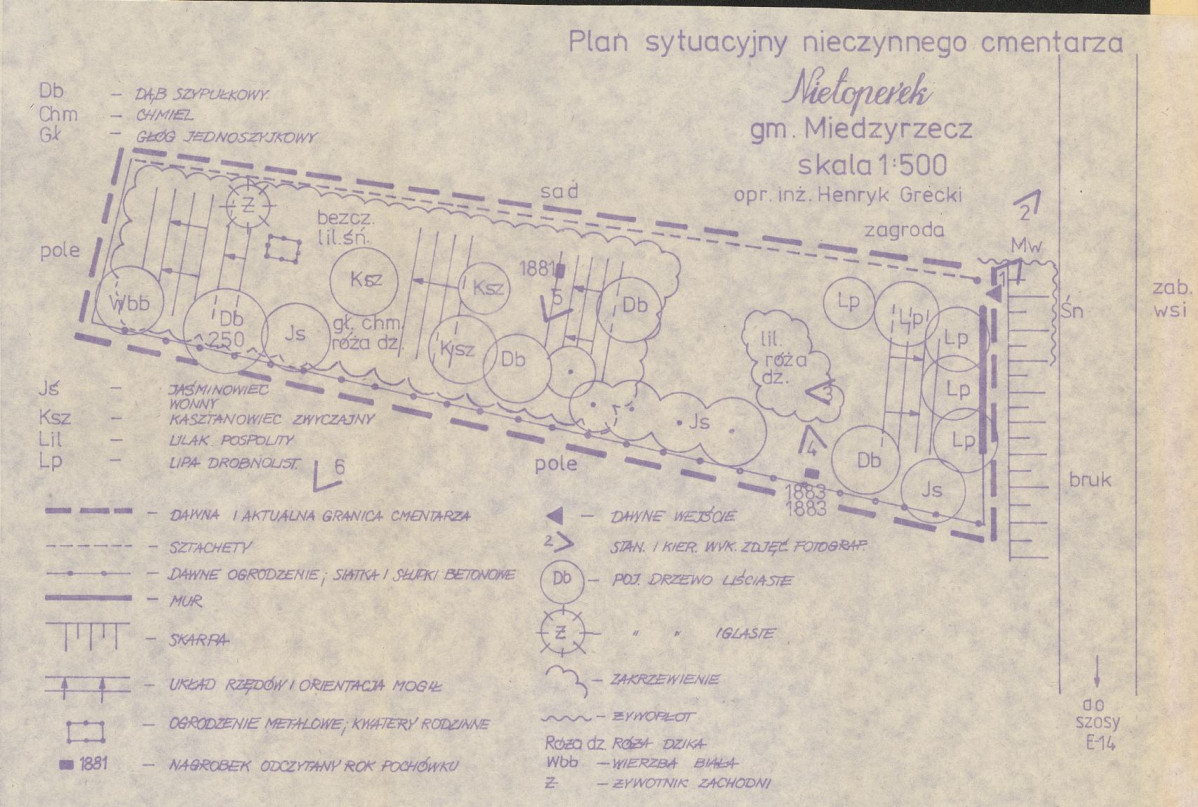 Plan sytuacyjny nieczynnego cmentarza
Nietoperek
gm. Miedzyrzecz
skala 1:500
opr. inż. Henryk Grecki
Db – DĄB SZYPUŁKOWY
Chm – CHMIEL
Gł – GŁÓG JEDNOSZYJKOWY
sad
zagroda
2
Mw
1
pole
Ż
bezcz.
lil. śń.
Ksz
Ksz
1881
5
Db
Lp
Lp
Lp
Śn
zab.
wsi
Wbb
Db
250
Js
gł. chm.
róża dz.
Ksz
Db
lil.
róża
dz.
3
Lp
Js
4
Db
Lp
Js
bruk
Jś – JAŚMINOWIEC
WONNY
Ksz – KASZTANOWIEC ZWYCZAJNY
Lil – LILAK POSPOLITY
Lp – LIPA DROBNOLIST.
6
pole
1883
1883
– DAWNA I AKTUALNA GRANICA CMENTARZA
– SZTACHETY
– DAWNE OGRODZENIE; SIATKA I SŁUPKI BETONOWE
– MUR
– SKARPA
– UKŁAD RZĘDÓW I ORIENTACJA MOGIŁ
– OGRODZENIE METALOWE; KWATERY RODZINNE
1881 – NAGROBEK ODCZYTANY ROK POCHÓWKU
– DAWNE WEJŚCIE
2 STAN. I KIER. WYK. ZDJĘĆ FOTOGRAF.
Db – POJ. DRZEWO LIŚCIASTE
Ż – " " IGLASTE
– ZAKRZEWIENIE
– ŻYWOPŁOT
Róża dz. RÓŻA DZIKA
Wbb – WIERZBA BIAŁA
Ż – ŻYWOTNIK ZACHODNI
do
szosy
E-14